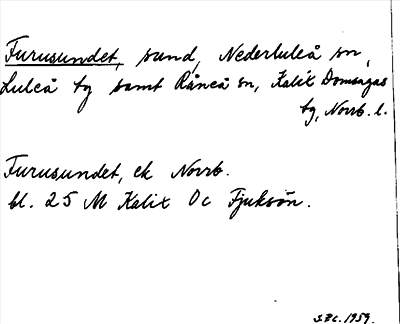 Furusundet, sund, Nederluleå sn,
Luleå tg samt Råneå sn, Kalix Domsagas
tg, Norrb. l.
Furusundet, ek Norrb.
bl. 25 M Kalix Oc Fjuksön.
1959.